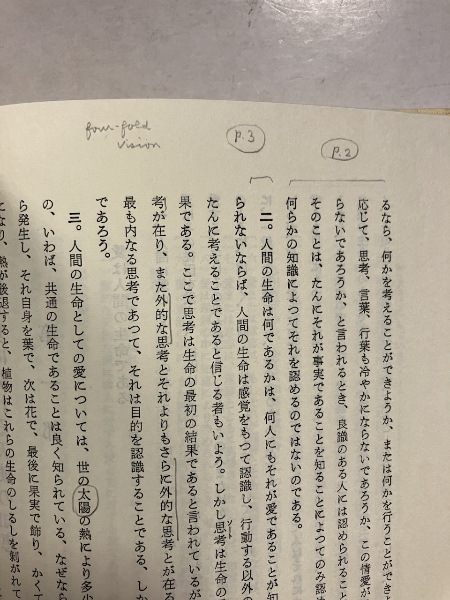 four-fold
vision
P.3
P.2
るなら、何かを考えることができようか、または何かを行うことができよ
応じて、思考、言葉、行葉も冷やかにならないであろうか、この情愛が
らないであろうか、と言われるとき、良識のある人には認められること
そのことは、たんにそれが事実であることを知ることによつてのみ認め
何らかの知識によつてそれを認めるのではないのである。
二。人間の生命は何であるかは、何人にもそれが愛であることが知
られないならば、人間の生命は感覚をもつて認識し、行動する以外の
たんに考えることであると信じる者もいよう。しかし思考は生命の
果である。ここで思考は生命の最初の結果であると言われているが
考が在り、また外的な思考とそれよりもさらに外的な思考とが在る
最も内なる思考であつて、それは目的を認識することである、しか
であろう。
三。人間の生命としての愛については、世の太陽の熱により多少
の、いわば、共通の生命であることは良く知られている、なぜなら
ら発生し、それ自身を葉で、次は花で、最後に果実で飾り、かくて
になり、熱が後退すると、植物はこれらの生命のしるしを剝がれて